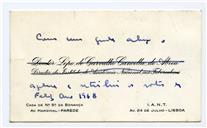 Com um grande abraço
Doutor Lopo de Carvalho Cancella de Abreu
Director do Instituto de Assistência Nacional aos Tuberculosos
e retribui os votos de
Feliz Ano 1968
CASA DE Nª Sª DA BONANÇA
I. A. N. T.
AV. MARGINAL - PAREDE
AV. 24 DE JULHO - LISBOA